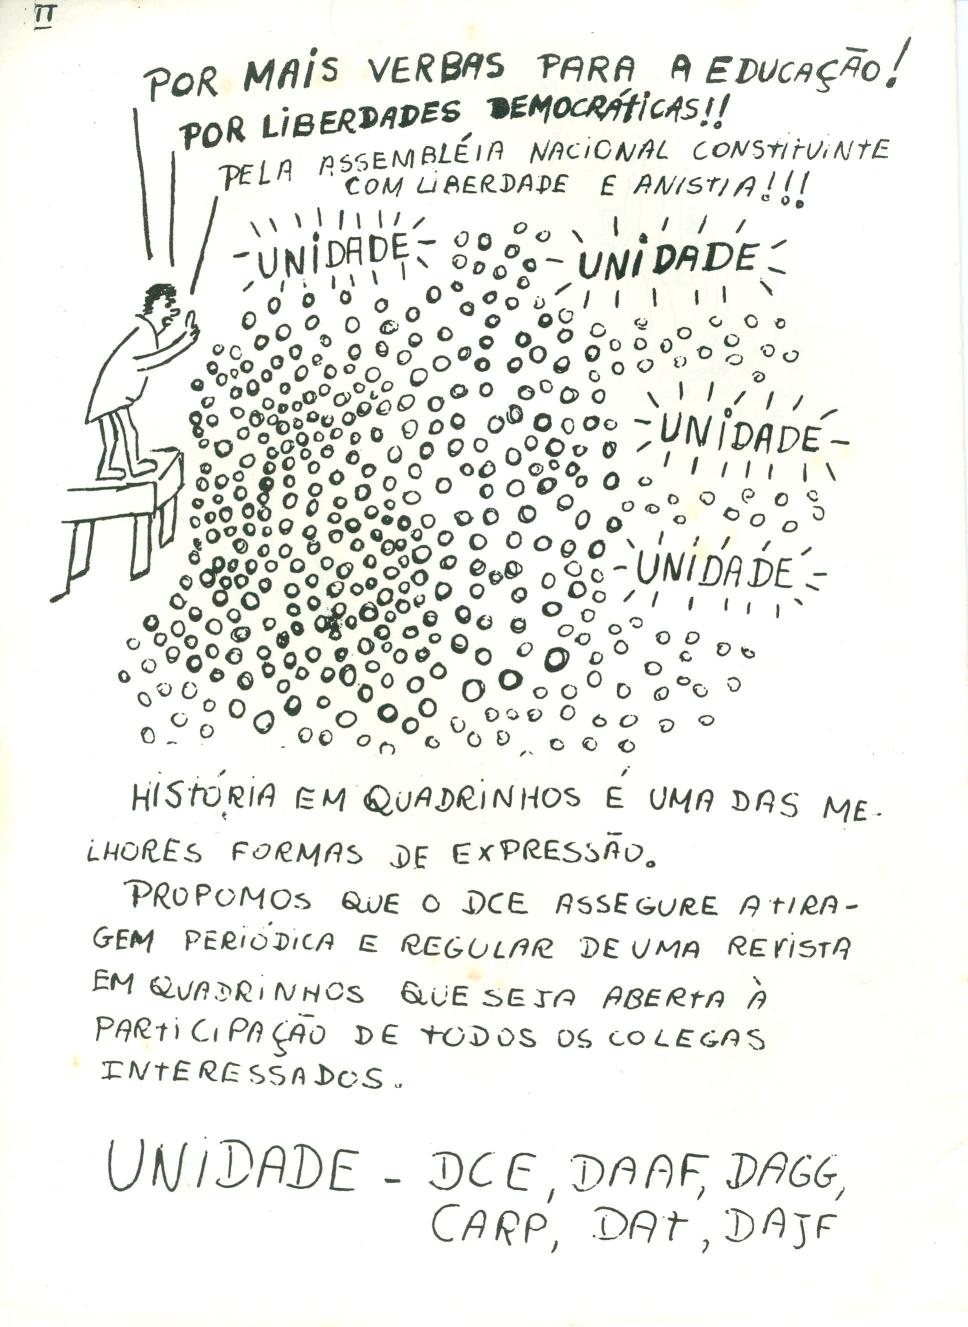 II
POR MAIS VERBAS PARA A EDUCAÇÃO!
POR LIBERDADES DEMOCRÁTICAS!!
PELA ASSEMBLÉIA NACIONAL CONSTITUINTE
COM LIBERDADE E ANISTIA!!!
UNIDADE
UNIDADE
UNIDADE
UNIDADE
HISTÓRIA EM QUADRINHOS É UMA DAS ME-
LHORES FORMAS DE EXPRESSÃO.
PROPOMOS QUE O DCE ASSEGURE A TIRA-
GEM PERIÓDICA E REGULAR DE UMA REVISTA
EM QUADRINHOS QUE SEJA ABERTA À
PARTICIPAÇÃO DE TODOS OS COLEGAS
INTERESSADOS.
UNIDADE - DCE, DAAF, DAGG,
CARP, DAT, DAJF